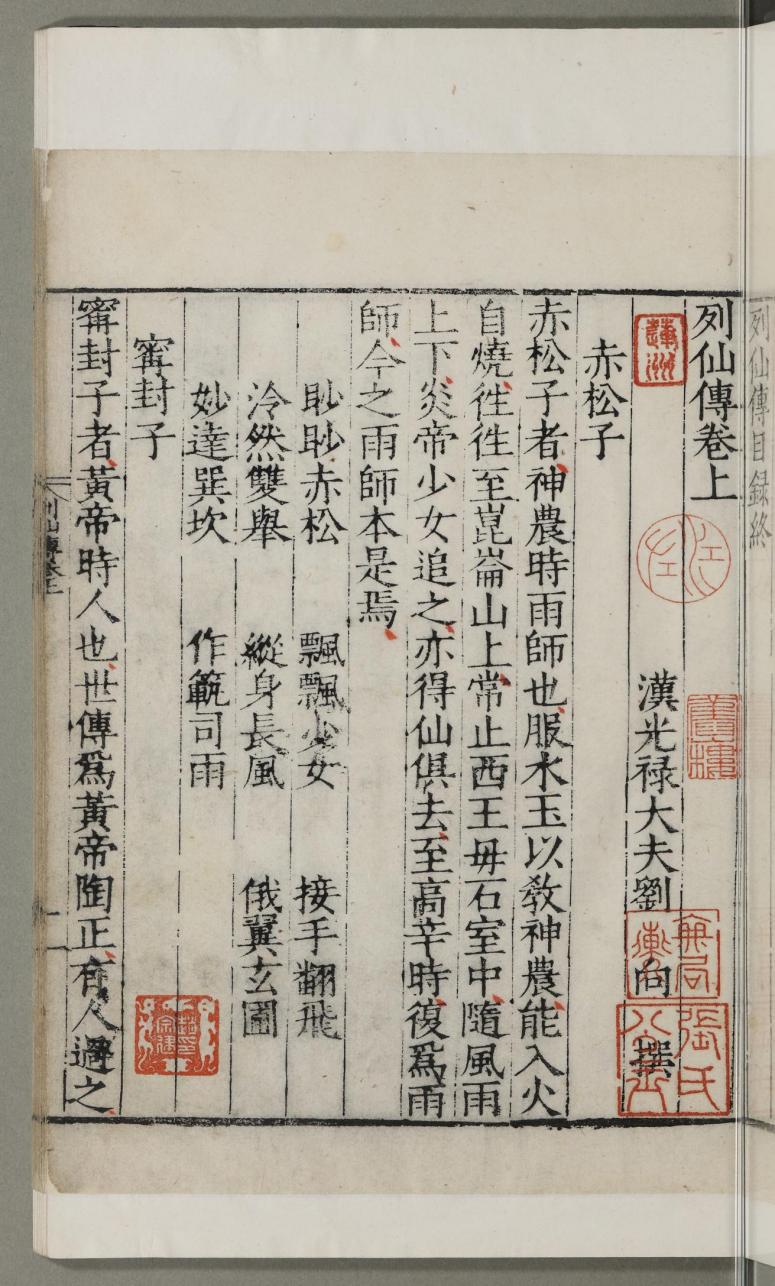 列仙傳目録終
列仙傳卷上
漢光禄大夫劉向撰
赤松子
赤松子者、神農時雨師也、服水玉以教神農、能入火
自燒、徃徃至崑崙山上、常止西王毋石室中、隨風雨
上下、炎帝少女追之、亦得仙俱去、至高辛時、復爲雨
師、今之雨師本是焉、
眇眇赤松 飄飄少女 接手翻飛
泠然雙舉 縱身長風 俄翼玄圃
妙達巽坎 作範司雨
甯封子
甯封子者、黃帝時人也、世傳爲黃帝陶正、有人過之、
列仙傳卷上
二
張氏